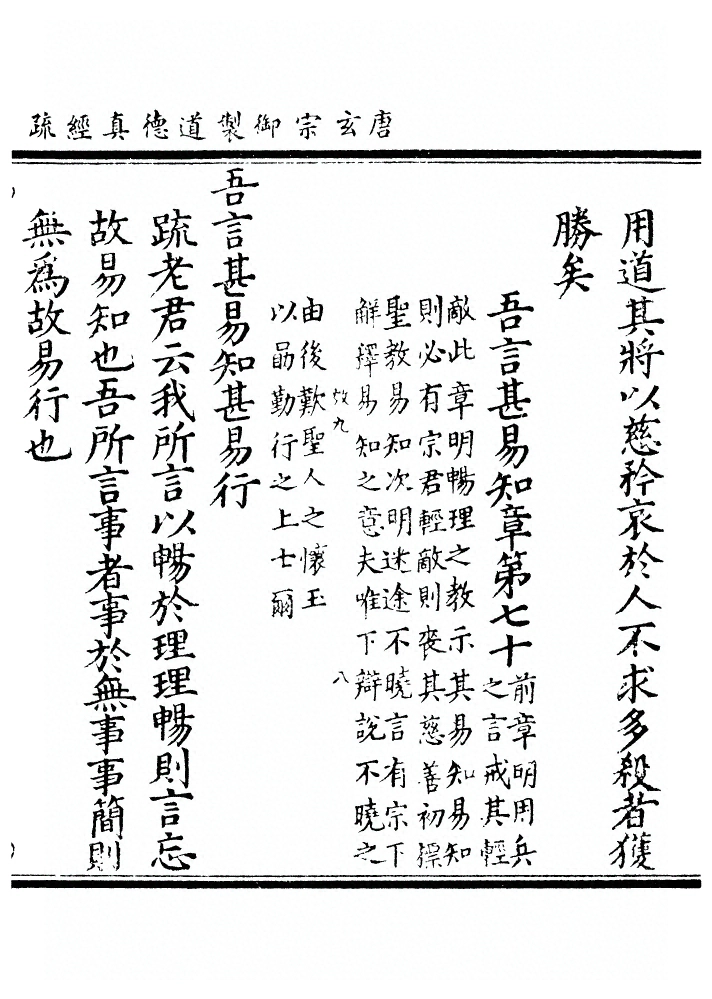 唐玄宗御製道德真經疏
用道其將以慈矜哀於人不求多殺者獲
勝矣
吾言甚易知章第七十
前章明用兵
之言戒其輕
敵此章明暢理之教示其易知易知
則必有宗君輕敵則喪其慈善初標
聖教易知次明迷途不曉言有宗下
解擇易知之意夫唯下辯說不曉之
效九 八
由後歎聖人之懷玉
以勗勤行之上士爾
吾言甚易知甚易行
疏老君云我所言以暢於理理暢則言忘
故易知也吾所言事者事於無事事簡則
無為故易行也